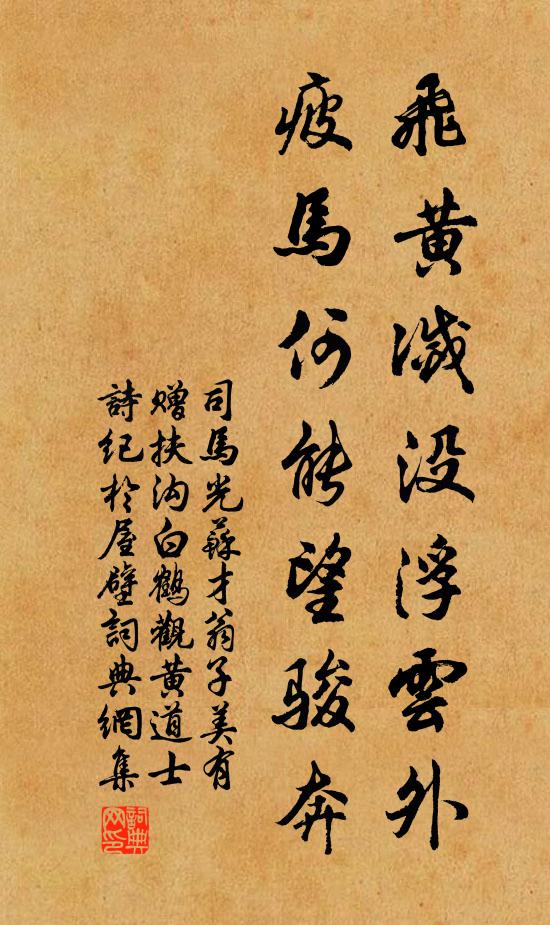 飛黄滅没浮雲外
疲馬何能望駿奔
司馬光蘇才翁子美有
贈扶沟白鶴觀黄道士
詩纪於屋壁詞典網集
詞典网印